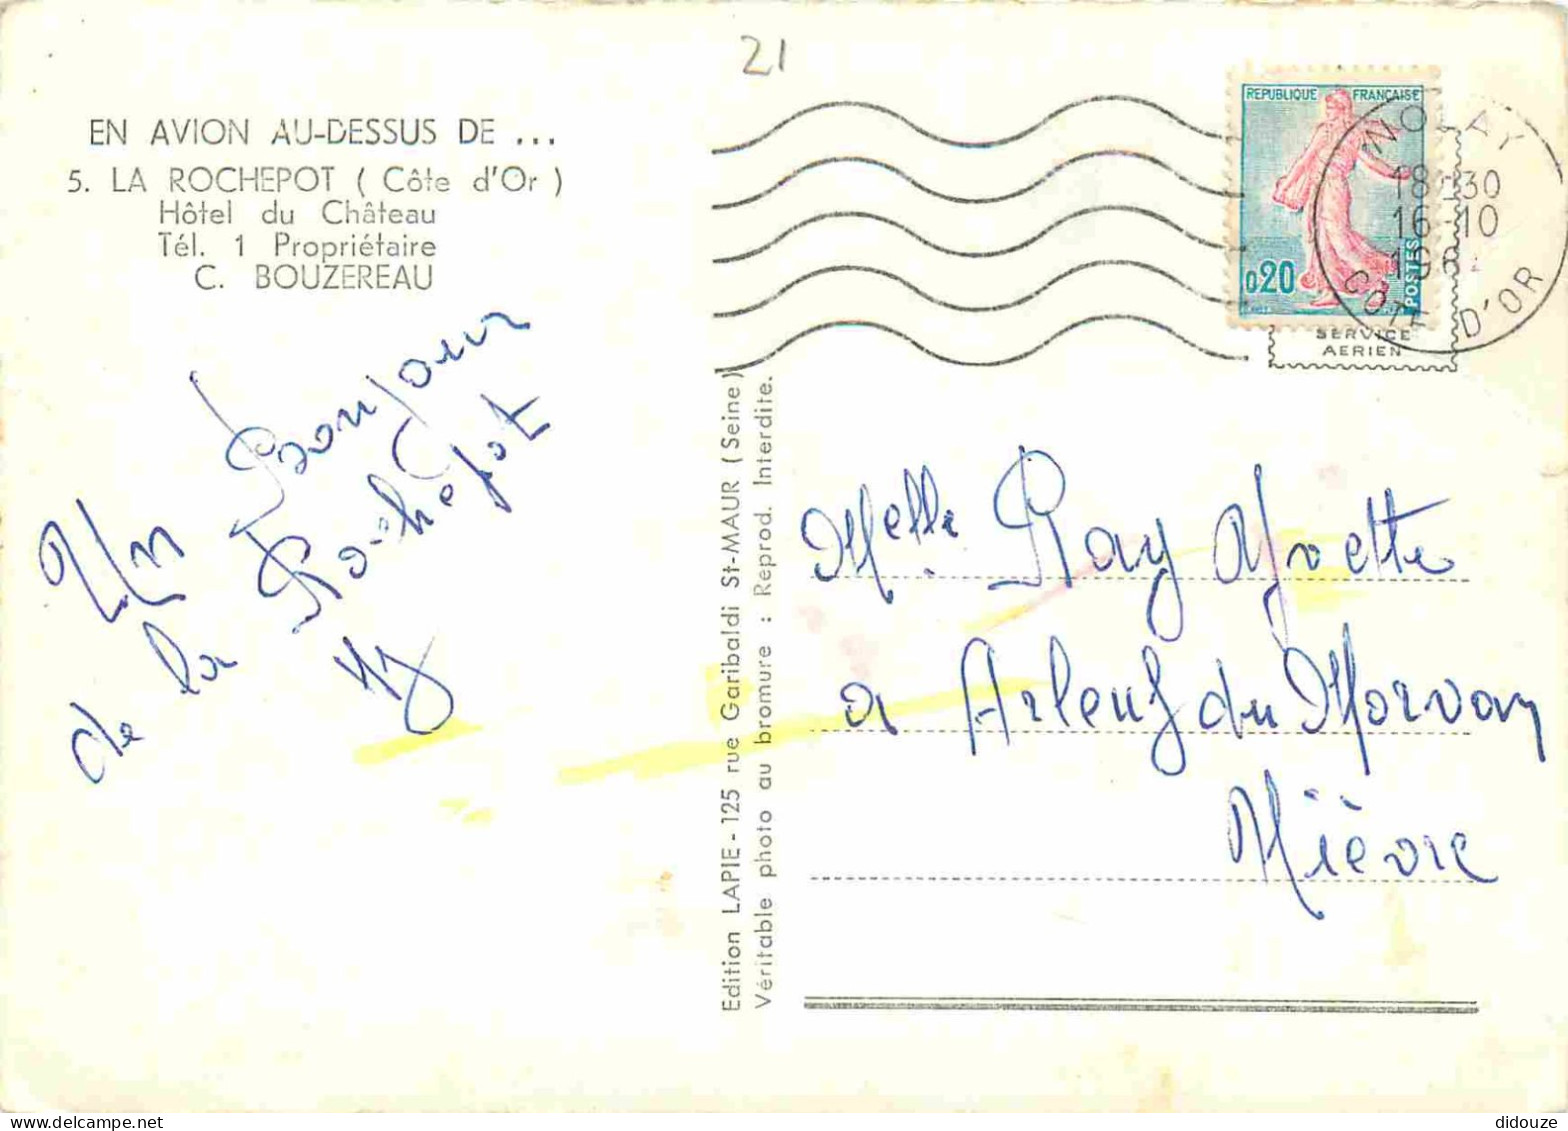 21
EN AVION AU-DESSUS DE ...
5. LA ROCHEPOT ( Côte d'Or )
Hôtel du Château
Tél. 1 Propriétaire
C. BOUZEREAU
Un Bonjour
de la Rochepot
Edition LAPIE - 125 rue Garibaldi St-MAUR (Seine)
Véritable photo au bromure : Reprod. Interdite.
REPUBLIQUE FRANÇAISE
0.20
POSTES
NOLAY
18H30
16-10
COTE D'OR
SERVICE
AERIEN
Melle Ray Yvette
a Arleuf du Morvan
Nièvre
didouze